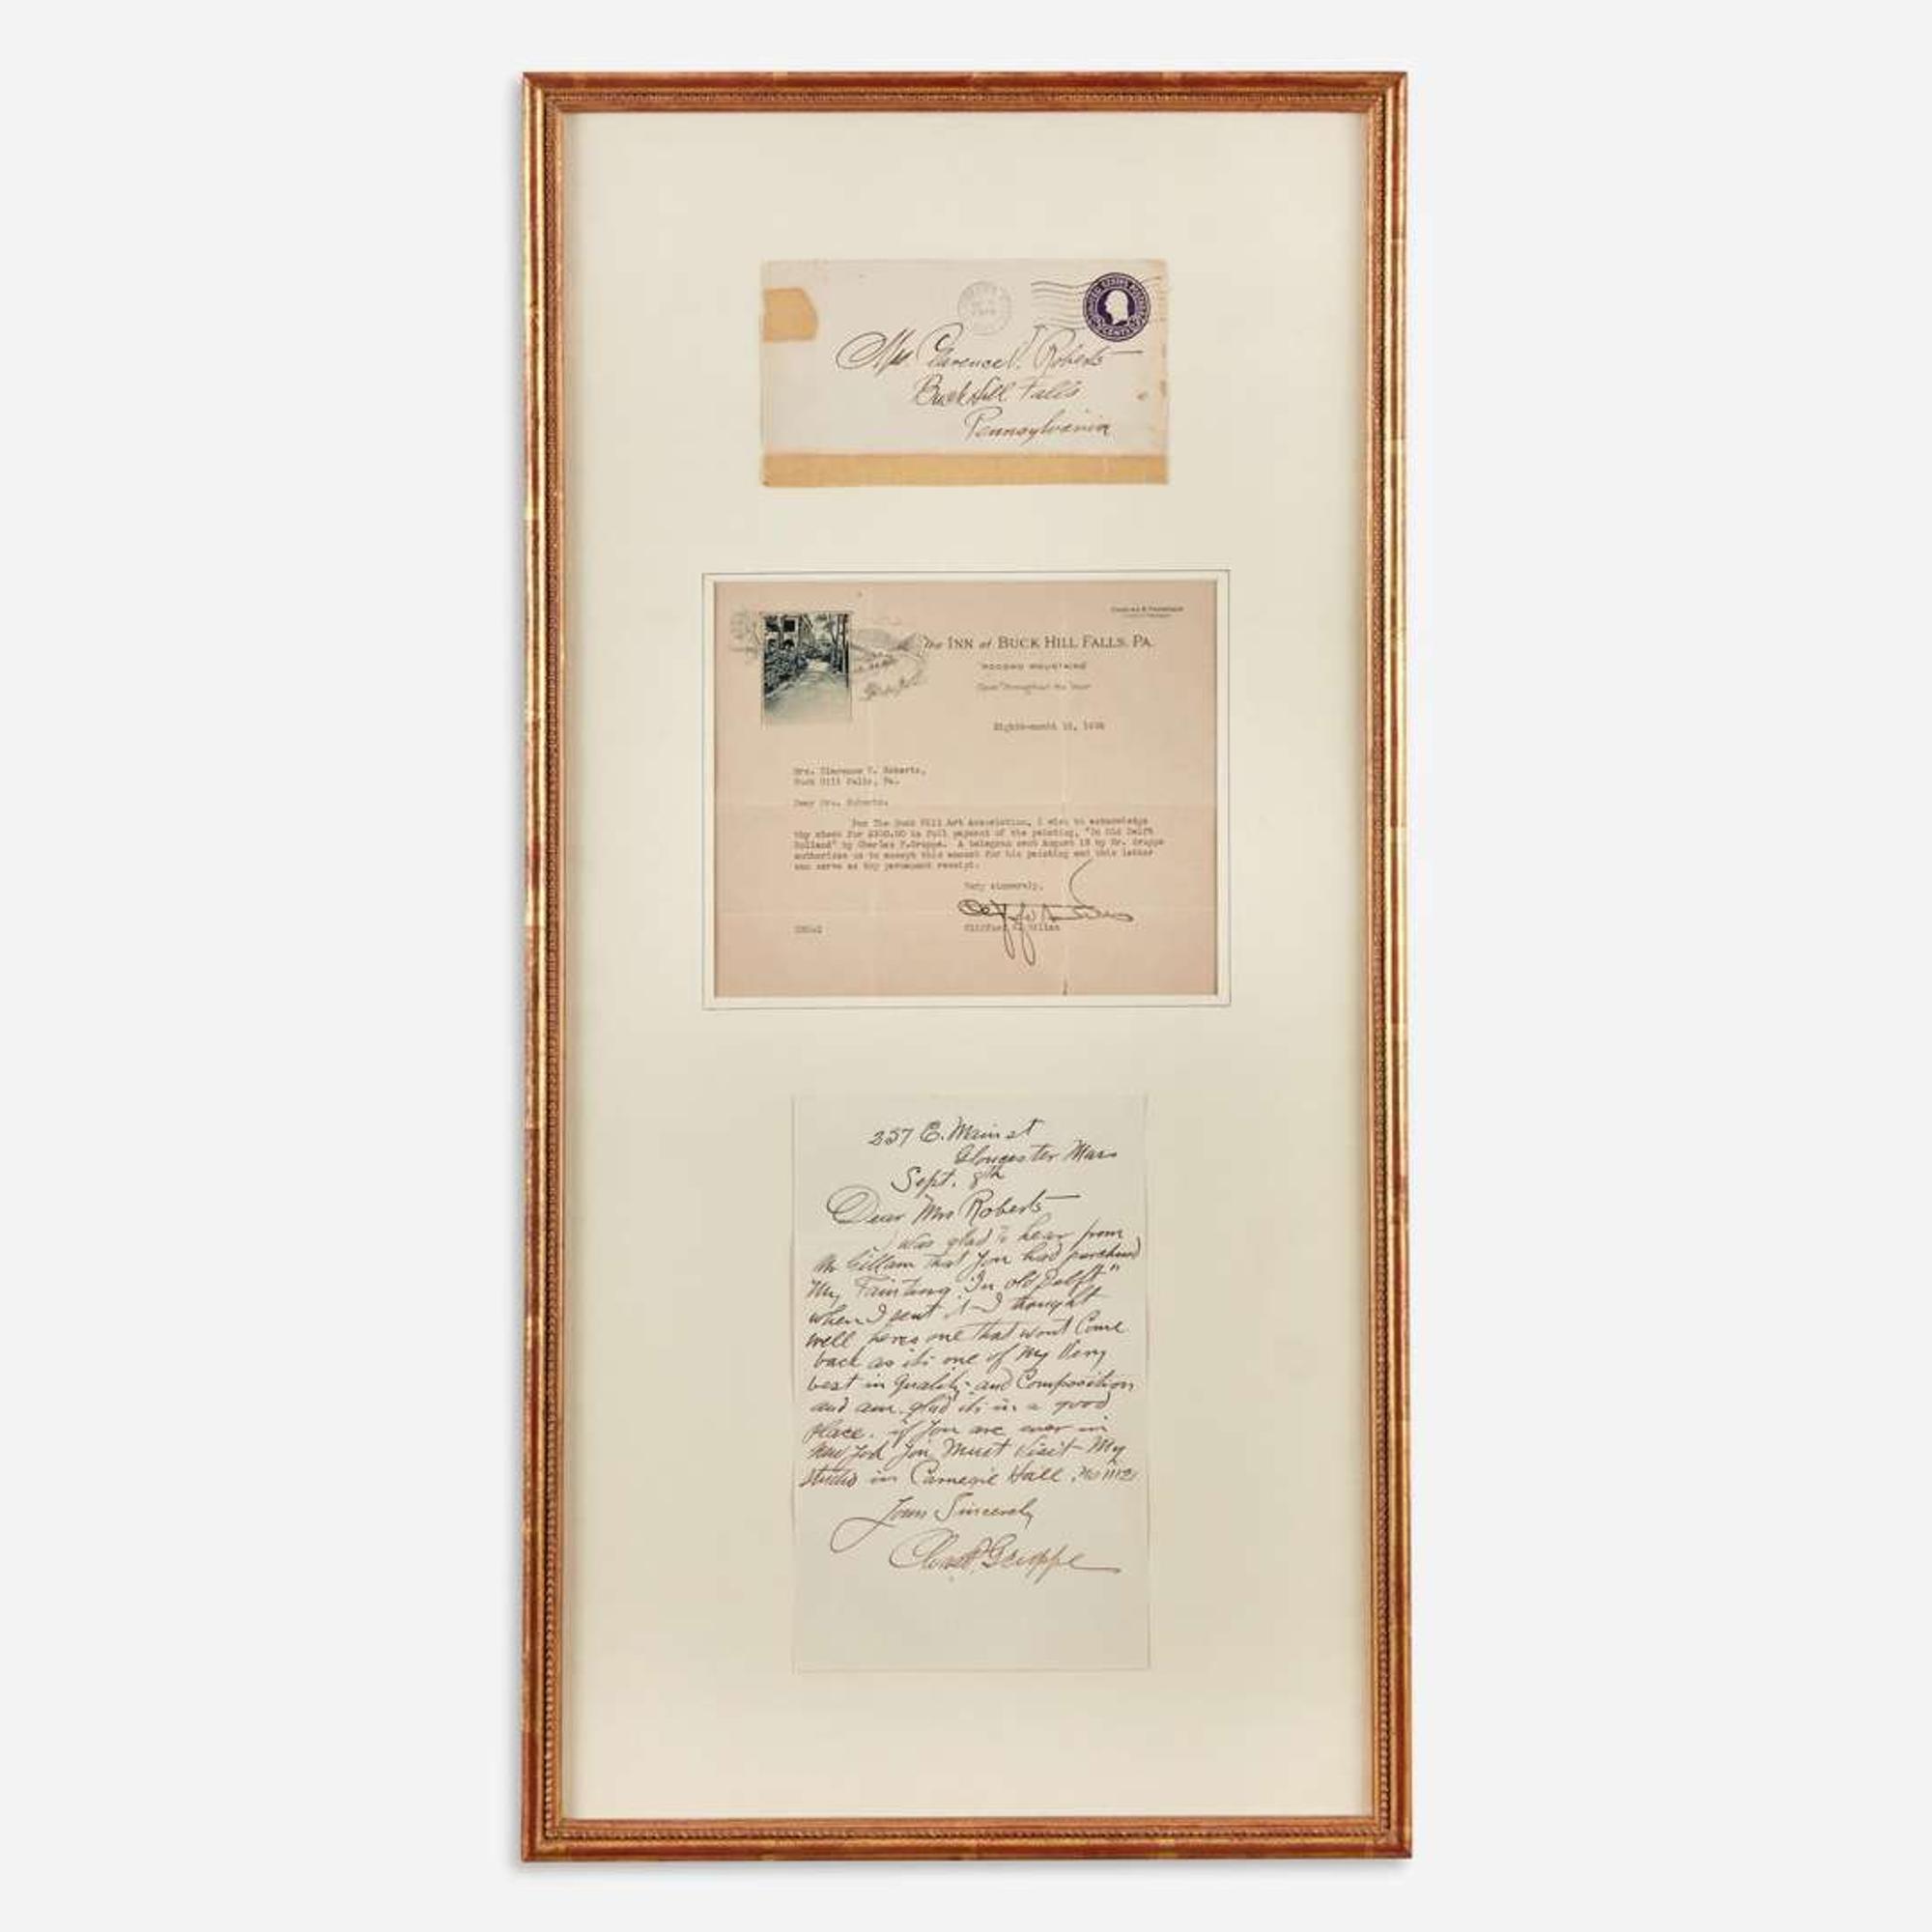 Mrs Clarence V. Roberts
Buck Hill Falls
Pennsylvania
UNITED STATES POSTAGE
CENTS
The INN at BUCK HILL FALLS, PA.
POCONO MOUNTAINS
Open Throughout the Year
Eighth-month
Mrs. Clarence V. Roberts,
Buck Hill Falls, Pa.
Dear Mrs. Roberts.
For The Buck Hill Art Association, I wish to acknowledge
thy check for in full payment of the painting, "In Old Delft
Holland" by Charles P.Gruppe. A telegram sent August 18 by Mr. Gruppe
authorizes us to accept this amount for his painting and this letter
can serve as thy permanent receipt.
Very sincerely,
Clifford
257 E. Main st
Gloucester Mass
Sept. 8th
Dear Mrs Roberts
I was glad to hear from
Mr Gillam that you had purchased
My Painting "In old Delft"
when I sent it I thought
well heres one that wont Come
back as its one of My Very
best in Quality and Composition
and am glad its in a good
place. if you are ever in
New York You Must Visit My
studio in Carnegie Hall. No 1112
Yours Sincerely
Chas P. Gruppe